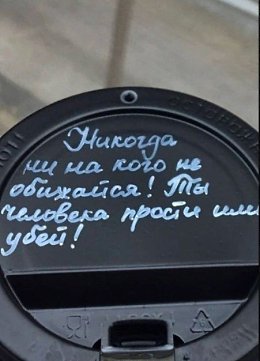 Никогда
ни на кого не
обижайся! Ты
человека прости или
убей!